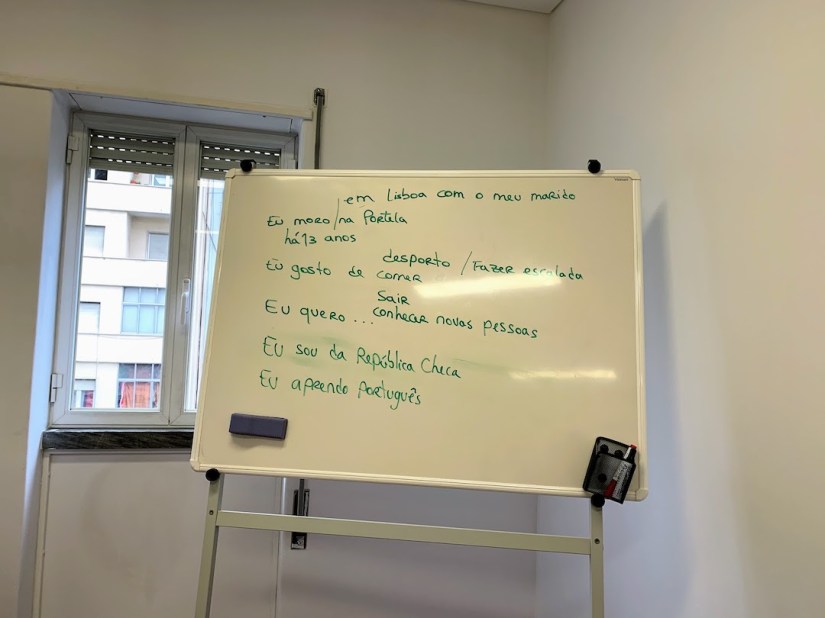 em Lisboa com o meu marido
Eu moro / na Portela
há 13 anos
desporto / Fazer escalada
Eu gosto de comer
Sair
Eu quero ... conhecer novas pessoas
Eu sou da República Checa
Eu aprendo Português